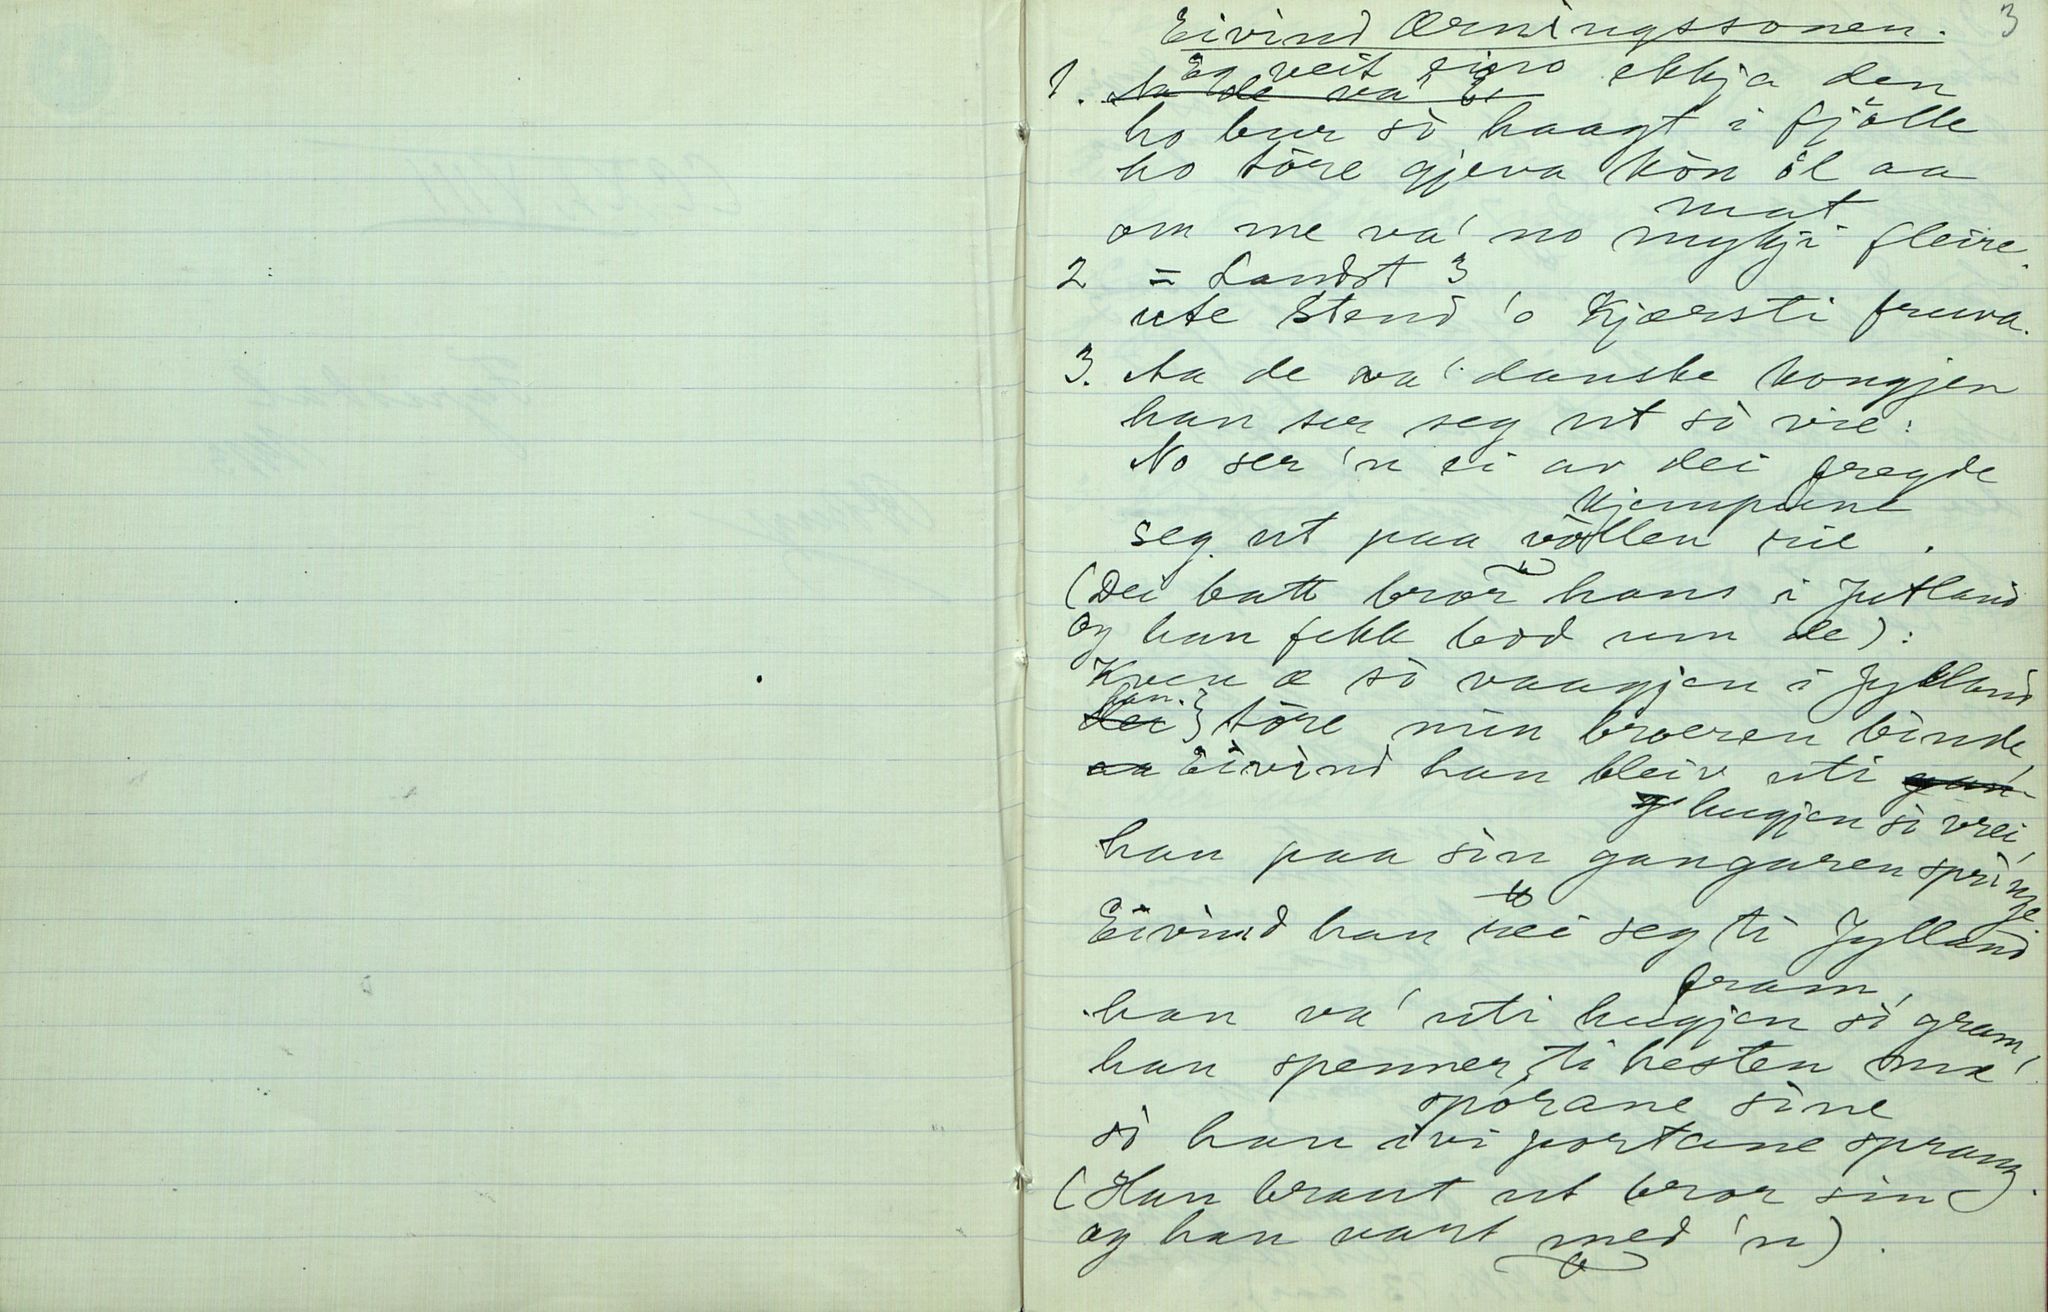 3
Eivind Ærningssonen.
Eg veit eino ekkja den
1. Aa de va' e
ho bur så haagt i fjölle
ho töre gjeva kön öl aa
mat
om me va' no mykji fleire.
2 = Landst 3
ute stend 'o Kjærsti fruva.
3. Aa de va' danske kongjen
han ser seg ut så vie:
No ser 'n ei av dei fregde
kjempune
seg ut paa völlen rie.
(Dei batt bror hans i Jutland
og han fekk bod um de):
Kven æ så vaagjen i Jylland
han
dei } töre min broeren binde,
aa Eivind han bleiv uti
hugjen så vrei,
han paa sin gangaren springe
Eivind han rei seg ti Jylland
fram,
han va' uti hugjen så gram,
han spenner ti hesten mæ
sporane sine
så han ivi portane sprang.
(Han braut ut bror sin
og han vart med 'n).